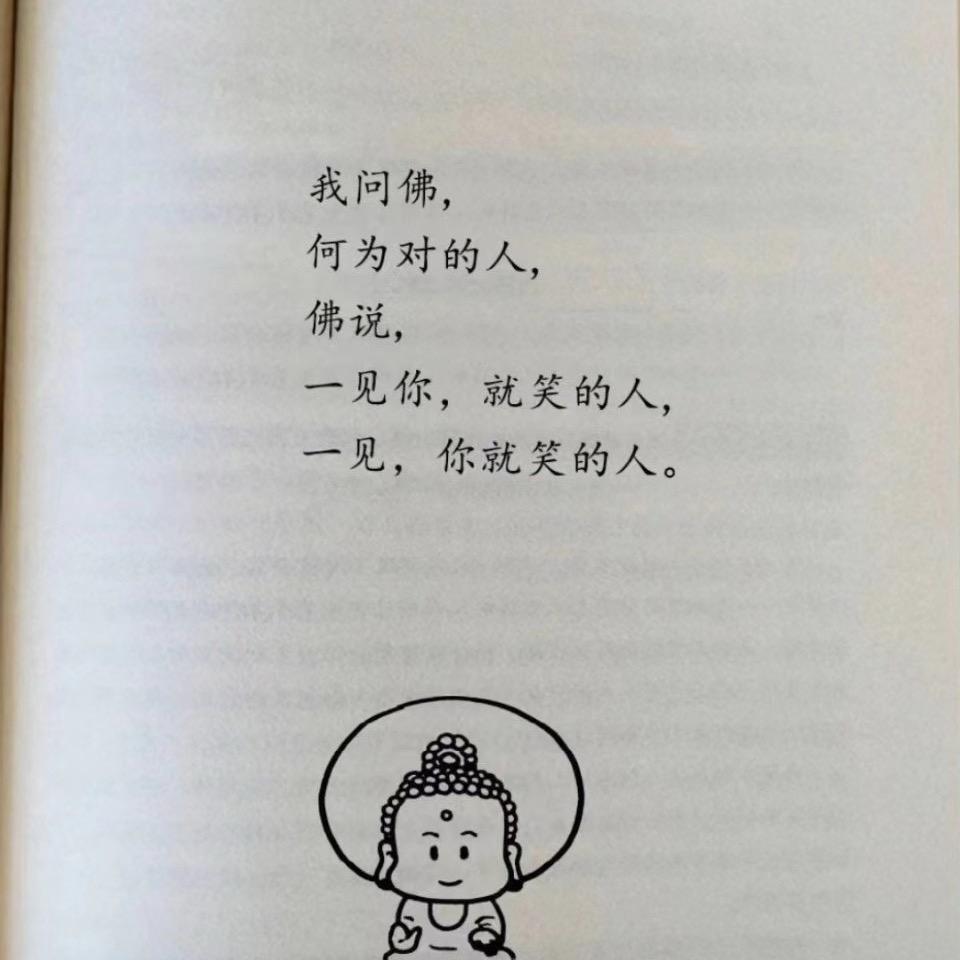 我问佛，
何为对的人，
佛说，
一见你，就笑的人，
一见，你就笑的人。